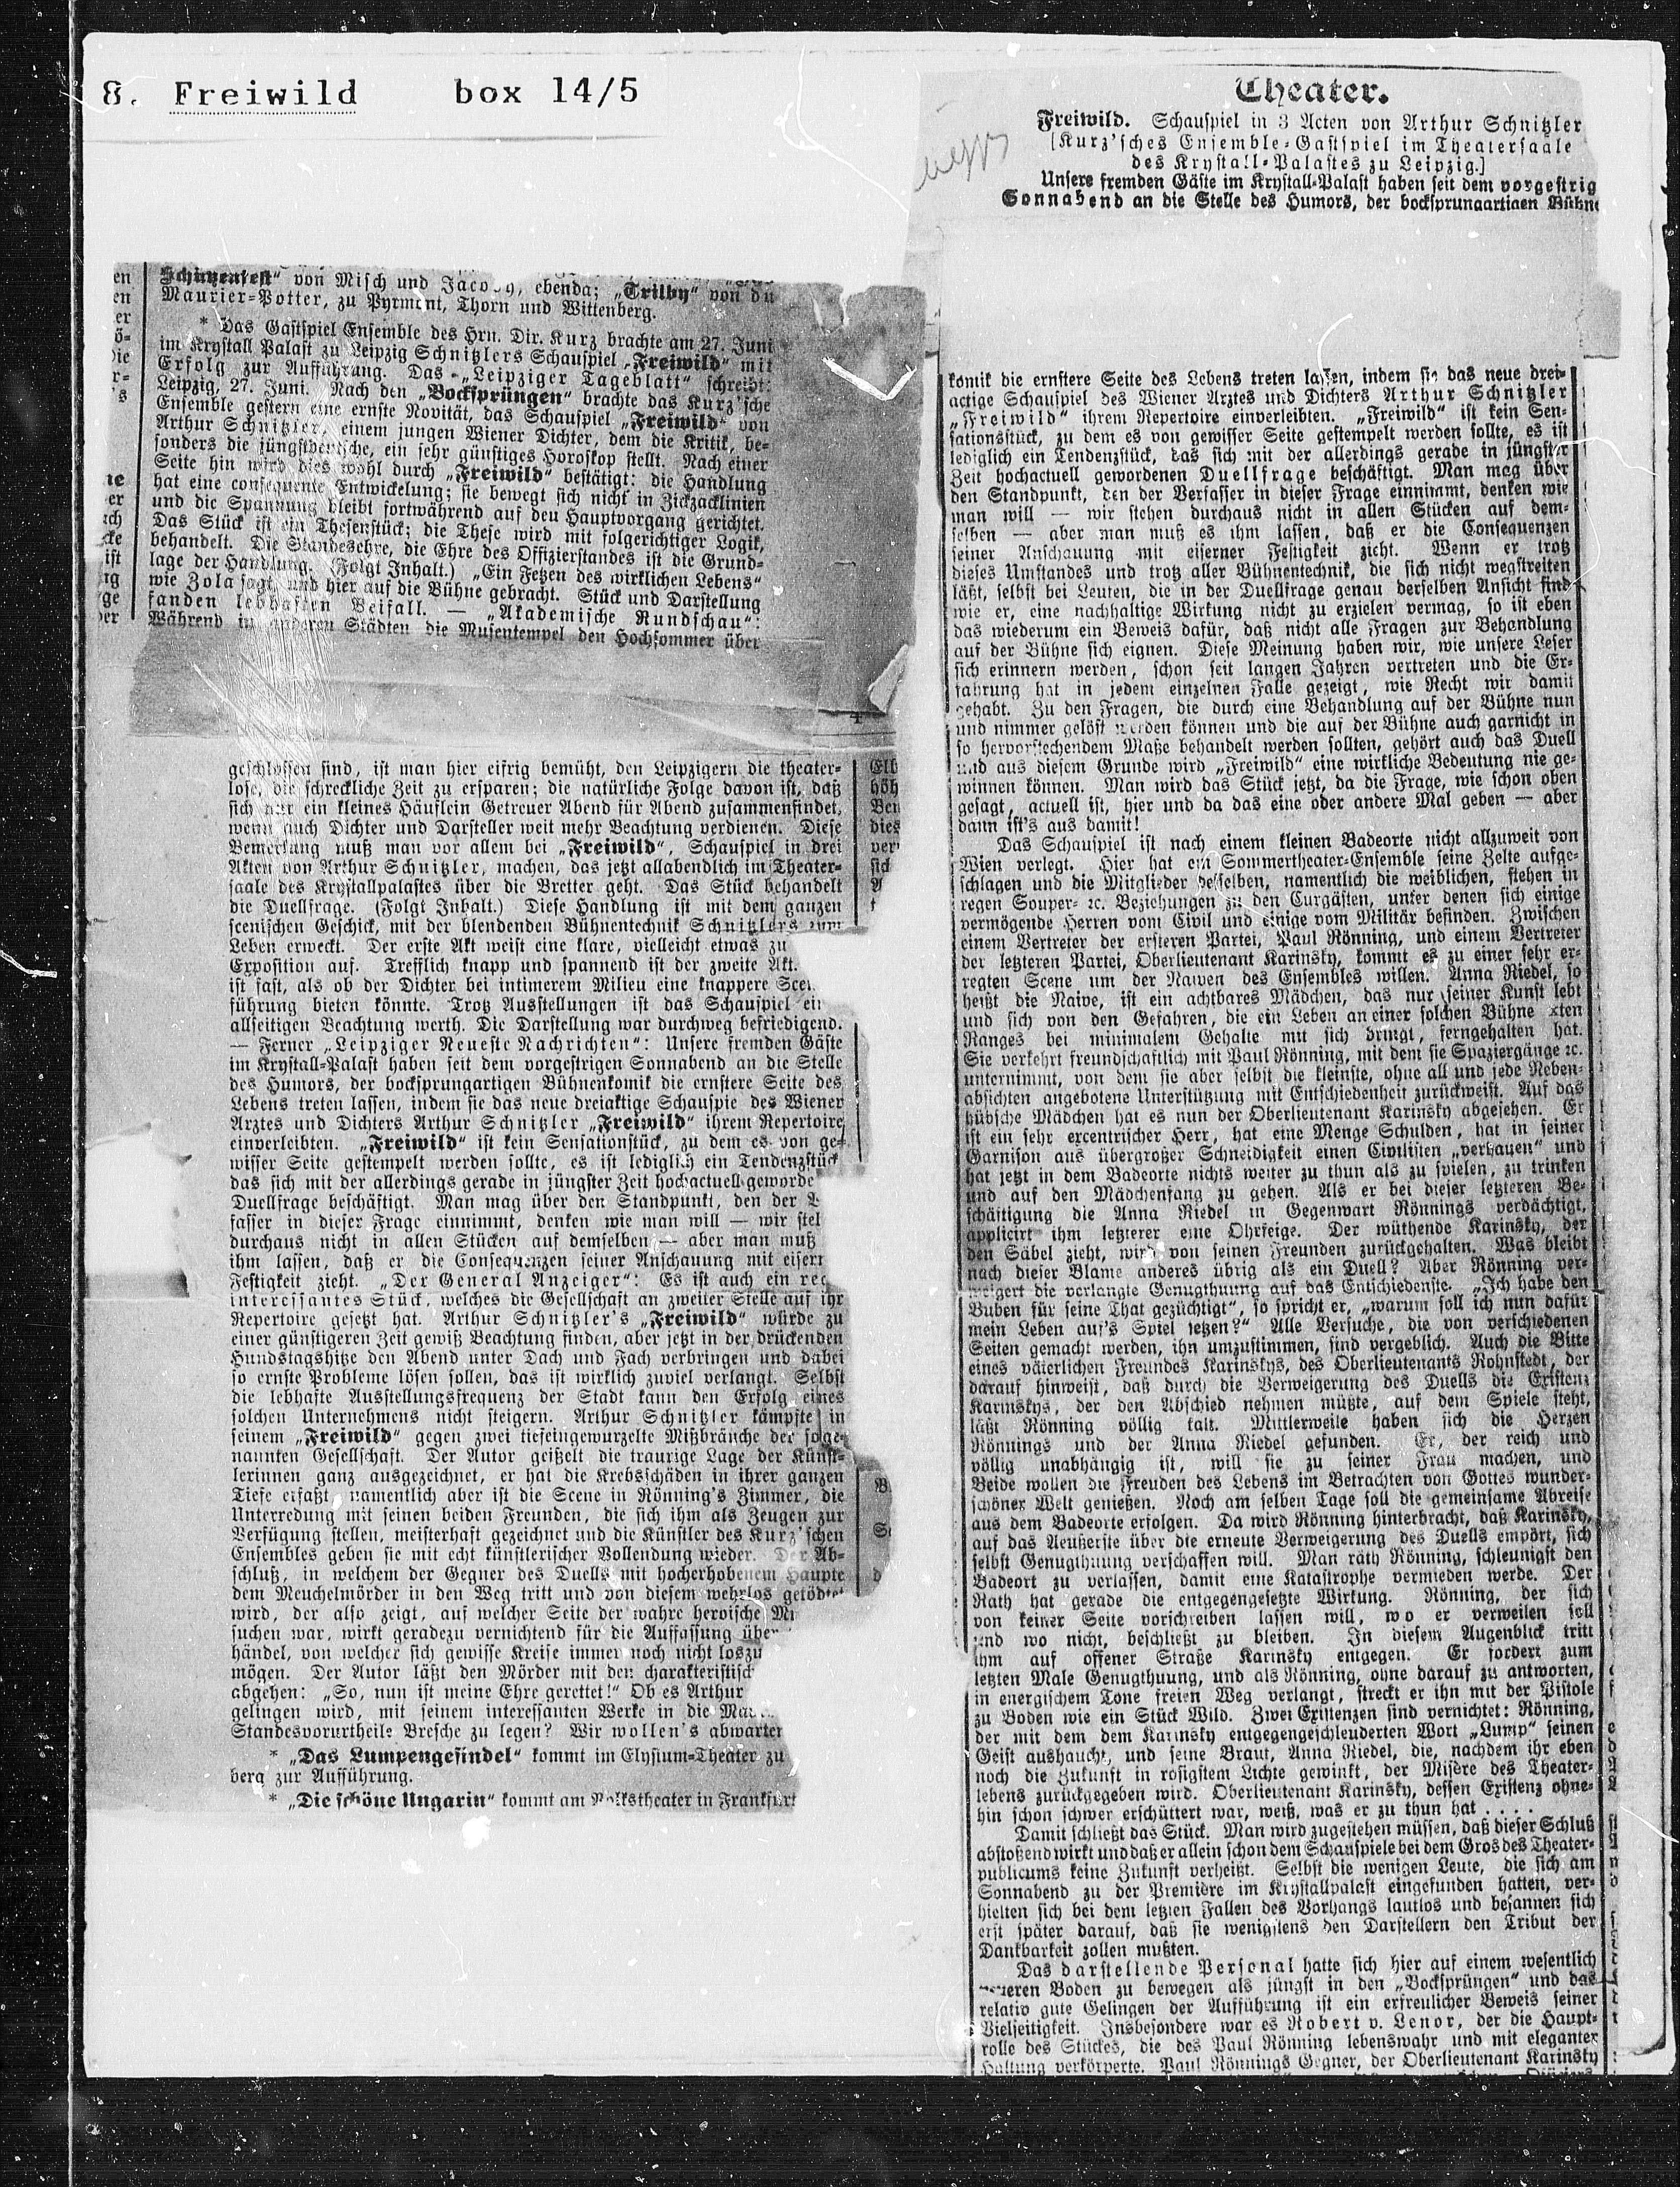 8. Freiwild box 14/5
Schützenfest“ von Misch und Jacoby, ebenda; „Trilby“ von du
Maurier-Potter, zu Pyrmont, Thorn und Wittenberg.
* Das Gastspiel Ensemble des Hrn. Dir. Kurz brachte am 27. Juni
im Krystall Palast zu Leipzig Schnitzlers Schauspiel „Freiwild“ mit
Erfolg zur Aufführung. Das „Leipziger Tageblatt“ schreibt:
Leipzig, 27. Juni. Nach den „Bocksprüngen“ brachte das Kurz'sche
Ensemble gestern eine ernste Novität, das Schauspiel „Freiwild“ von
Arthur Schnitzler, einem jungen Wiener Dichter, dem die Kritik, be-
sonders die jüngstdeutsche, ein sehr günstiges Horoskop stellt. Nach einer
Seite hin wird dies wohl durch „Freiwild“ bestätigt: die Handlung
hat eine consequente Entwickelung; sie bewegt sich nicht in Zickzacklinien
und die Spannung bleibt fortwährend auf den Hauptvorgang gerichtet.
Das Stück ist ein Thesenstück; die These wird mit folgerichtiger Logik,
behandelt. Die Standesehre, die Ehre des Offizierstandes ist die Grund-
lage der Handlung. (Folgt Inhalt.) „Ein Fetzen des wirklichen Lebens“
wie Zola sagt, und hier auf die Bühne gebracht. Stück und Darstellung
fanden lebhaften Beifall. — „Akademische Rundschau“:
Während in anderen Städten die Musentempel den Hochsommer über
geschlossen sind, ist man hier eifrig bemüht, den Leipzigern die theater-
lose, die schreckliche Zeit zu ersparen; die natürliche Folge davon ist, daß
sich nur ein kleines Häuflein Getreuer Abend für Abend zusammenfindet,
wenn auch Dichter und Darsteller weit mehr Beachtung verdienen. Diese
Bemerkung muß man vor allem bei „Freiwild“, Schauspiel in drei
Akten von Arthur Schnitzler, machen, das jetzt allabendlich im Theater-
saale des Krystallpalastes über die Bretter geht. Das Stück behandelt
die Duellfrage. (Folgt Inhalt.) Diese Handlung ist mit dem ganzen
scenischen Geschick, mit der blendenden Bühnentechnik Schnitzlers zum
Leben erweckt. Der erste Akt weist eine klare, vielleicht etwas zu
Exposition auf. Trefflich knapp und spannend ist der zweite Akt.
ist fast, als ob der Dichter bei intimerem Milieu eine knappere Scen
führung bieten könnte. Trotz Ausstellungen ist das Schauspiel ein
allseitigen Beachtung werth. Die Darstellung war durchweg befriedigend.
— Ferner „Leipziger Neueste Nachrichten“: Unsere fremden Gäste
im Krystall-Palast haben seit dem vorgestrigen Sonnabend an die Stelle
des Humors, der bocksprungartigen Bühnenkomik die ernstere Seite des
Lebens treten lassen, indem sie das neue dreiaktige Schauspie des Wiener
Arztes und Dichters Arthur Schnitzler „Freiwild“ ihrem Repertoire
einverleibten. „Freiwild“ ist kein Sensationstück, zu dem es von ge-
wisser Seite gestempelt werden sollte, es ist lediglich ein Tendenzstück
das sich mit der allerdings gerade in jüngster Zeit hochactuell geworde
Duellfrage beschäftigt. Man mag über den Standpunkt, den der V
fasser in dieser Frage einnimmt, denken wie man will — wir steh
durchaus nicht in allen Stücken auf demselben — aber man muß
ihm lassen, daß er die Consequenzen seiner Anschauung mit eisern
Festigkeit zieht. „Der General Anzeiger“: Es ist auch ein rec
interessantes Stück, welches die Gesellschaft an zweiter Stelle auf ihr
Repertoire gesetzt hat. Arthur Schnitzler's „Freiwild“ würde zu
einer günstigeren Zeit gewiß Beachtung finden, aber jetzt in der drückenden
Hundstagshitze den Abend unter Dach und Fach verbringen und dabei
so ernste Probleme lösen sollen, das ist wirklich zuviel verlangt. Selbst
die lebhafte Ausstellungsfrequenz der Stadt kann den Erfolg eines
solchen Unternehmens nicht steigern. Arthur Schnitzler kämpfte in
seinem „Freiwild“ gegen zwei tiefeingewurzelte Mißbräuche der soge-
nannten Gesellschaft. Der Autor geißelt die traurige Lage der Künst-
lerinnen ganz ausgezeichnet, er hat die Krebsschäden in ihrer ganzen
Tiefe erfaßt, namentlich aber ist die Scene in Rönning's Zimmer, die
Unterredung mit seinen beiden Freunden, die sich ihm als Zeugen zur
Verfügung stellen, meisterhaft gezeichnet und die Künstler des Kurz'schen
Ensembles geben sie mit echt künstlerischer Vollendung wieder. Der Ab-
schluß, in welchem der Gegner des Duells mit hocherhobenem Haupte
dem Meuchelmörder in den Weg tritt und von diesem wehrlos getödtet
wird, der also zeigt, auf welcher Seite der wahre heroische Mu
suchen war, wirkt geradezu vernichtend für die Auffassung über
händel, von welcher sich gewisse Kreise immer noch nicht loszu
mögen. Der Autor läßt den Mörder mit den charakteristisch
abgehen: „So, nun ist meine Ehre gerettet!“ Ob es Arthur
gelingen wird, mit seinem interessanten Werke in die Mau
Standesvorurtheile Bresche zu legen? Wir wollen's abwarten
* „Das Lumpengesindel“ kommt im Elysium-Theater zu
berg zur Aufführung.
* „Die schöne Ungarin“ kommt am Volkstheater in Frankfurt
Theater.
Freiwild. Schauspiel in 3 Acten von Arthur Schnitzler
[Kurz'sches Ensemble-Gastspiel im Theatersaale
des Krystall-Palastes zu Leipzig.]
Unsere fremden Gäste im Krystall-Palast haben seit dem vorgestrig
Sonnabend an die Stelle des Humors, der bocksprungartigen Bühne
komik die ernstere Seite des Lebens treten lassen, indem sie das neue drei-
actige Schauspiel des Wiener Arztes und Dichters Arthur Schnitzler
„Freiwild“ ihrem Repertoire einverleibten. „Freiwild“ ist kein Sen-
sationsstück, zu dem es von gewisser Seite gestempelt werden sollte, es ist
lediglich ein Tendenzstück, das sich mit der allerdings gerade in jüngster
Zeit hochactuell gewordenen Duellfrage beschäftigt. Man mag über
den Standpunkt, den der Verfasser in dieser Frage einnimmt, denken wie
man will — wir stehen durchaus nicht in allen Stücken auf dem-
selben — aber man muß es ihm lassen, daß er die Consequenzen
seiner Anschauung mit eiserner Festigkeit zieht. Wenn er trotz
dieses Umstandes und trotz aller Bühnentechnik, die sich nicht wegstreiten
läßt, selbst bei Leuten, die in der Duellfrage genau derselben Ansicht sind
wie er, eine nachhaltige Wirkung nicht zu erzielen vermag, so ist eben
das wiederum ein Beweis dafür, daß nicht alle Fragen zur Behandlung
auf der Bühne sich eignen. Diese Meinung haben wir, wie unsere Leser
sich erinnern werden, schon seit langen Jahren vertreten und die Er-
fahrung hat in jedem einzelnen Falle gezeigt, wie Recht wir damit
gehabt. Zu den Fragen, die durch eine Behandlung auf der Bühne nun
und nimmer gelöst werden können und die auf der Bühne auch garnicht in
so hervorstechendem Maße behandelt werden sollten, gehört auch das Duell
und aus diesem Grunde wird „Freiwild“ eine wirkliche Bedeutung nie ge-
winnen können. Man wird das Stück jetzt, da die Frage, wie schon oben
gesagt, actuell ist, hier und da das eine oder andere Mal geben — aber
dann ist's aus damit!
Das Schauspiel ist nach einem kleinen Badeorte nicht allzuweit von
Wien verlegt. Hier hat ein Sommertheater-Ensemble seine Zelte aufge-
schlagen und die Mitglieder desselben, namentlich die weiblichen, stehen in
regen Souper- ꝛc. Beziehungen zu den Curgästen, unter denen sich einige
vermögende Herren vom Civil und einige vom Militär befinden. Zwischen
einem Vertreter der ersteren Partei, Paul Rönning, und einem Vertreter
der letzteren Partei, Oberlieutenant Karinsky, kommt es zu einer sehr er-
regten Scene um der Naiven des Ensembles willen. Anna Riedel, so
heißt die Naive, ist ein achtbares Mädchen, das nur seiner Kunst lebt
und sich von den Gefahren, die ein Leben an einer solchen Bühne xten
Ranges bei minimalem Gehalte mit sich bringt, ferngehalten hat.
Sie verkehrt freundschaftlich mit Paul Rönning, mit dem sie Spaziergänge ꝛc.
unternimmt, von dem sie aber selbst die kleinste, ohne all und jede Neben-
absichten angebotene Unterstützung mit Entschiedenheit zurückweist. Auf das
hübsche Mädchen hat es nun der Oberlieutenant Karinsky abgesehen. Er
ist ein sehr excentrischer Herr, hat eine Menge Schulden, hat in seiner
Garnison aus übergroßer Schneidigkeit einen Civilisten „verhauen“ und
hat jetzt in dem Badeorte nichts weiter zu thun als zu spielen, zu trinken
und auf den Mädchenfang zu gehen. Als er bei dieser letzteren Be-
schäftigung die Anna Riedel in Gegenwart Rönnings verdächtigt,
applicirt ihm letzterer eine Ohrfeige. Der wüthende Karinsky, der
den Säbel zieht, wird von seinen Freunden zurückgehalten. Was bleibt
nach dieser Blame anderes übrig als ein Duell? Aber Rönning ver-
weigert die verlangte Genugthuung auf das Entschiedenste. „Ich habe den
Buben für seine That gezüchtigt“, so spricht er, „warum soll ich nun dafür
mein Leben auf's Spiel setzen?“ Alle Versuche, die von verschiedenen
Seiten gemacht werden, ihn umzustimmen, sind vergeblich. Auch die Bitte
eines väterlichen Freundes Karinskys, des Oberlieutenants Rohnstedt, der
darauf hinweist, daß durch die Verweigerung des Duells die Existenz
Karinskys, der den Abschied nehmen müßte, auf dem Spiele steht,
läßt Rönning völlig kalt. Mittlerweile haben sich die Herzen
Rönnings und der Anna Riedel gefunden. Er, der reich und
völlig unabhängig ist, will sie zu seiner Frau machen, und
Beide wollen die Freuden des Lebens im Betrachten von Gottes wunder-
schöner Welt genießen. Noch am selben Tage soll die gemeinsame Abreise
aus dem Badeorte erfolgen. Da wird Rönning hinterbracht, daß Karinsky,
auf das Aeußerste über die erneute Verweigerung des Duells empört, sich
selbst Genugthuung verschaffen will. Man räth Rönning, schleunigst den
Badeort zu verlassen, damit eine Katastrophe vermieden werde. Der
Rath hat gerade die entgegengesetzte Wirkung. Rönning, der sich
von keiner Seite vorschreiben lassen will, wo er verweilen soll
und wo nicht, beschließt zu bleiben. In diesem Augenblick tritt
ihm auf offener Straße Karinsky entgegen. Er fordert zum
letzten Male Genugthuung, und als Rönning, ohne darauf zu antworten,
in energischem Tone freien Weg verlangt, streckt er ihn mit der Pistole
zu Boden wie ein Stück Wild. Zwei Existenzen sind vernichtet: Rönning,
der mit dem dem Karinsky entgegengeschleuderten Wort „Lump“ seinen
Geist aushaucht, und seine Braut, Anna Riedel, die, nachdem ihr eben
noch die Zukunft in rosigstem Lichte gewinkt, der Misère des Theater-
lebens zurückgegeben wird. Oberlieutenant Karinsky, dessen Existenz ohne-
hin schon schwer erschüttert war, weiß, was er zu thun hat . . . .
Damit schließt das Stück. Man wird zugestehen müssen, daß dieser Schluß
abstoßend wirkt und daß er allein schon dem Schauspiele bei dem Gros des Theater-
publicums keine Zukunft verheißt. Selbst die wenigen Leute, die sich am
Sonnabend zu der Premiere im Krystallpalast eingefunden hatten, ver-
hielten sich bei dem letzten Fallen des Vorhangs lautlos und besannen sich
erst später darauf, daß sie wenigstens den Darstellern den Tribut der
Dankbarkeit zollen mußten.
Das darstellende Personal hatte sich hier auf einem wesentlich
Boden zu bewegen als jüngst in den „Bocksprüngen“ und das
relativ gute Gelingen der Aufführung ist ein erfreulicher Beweis seiner
Vielseitigkeit. Insbesondere war es Robert v. Lenor, der die Haupt-
rolle des Stückes, die des Paul Rönning lebenswahr und mit eleganter
Haltung verkörperte. Paul Rönnings Gegner, der Oberlieutenant Karinsky